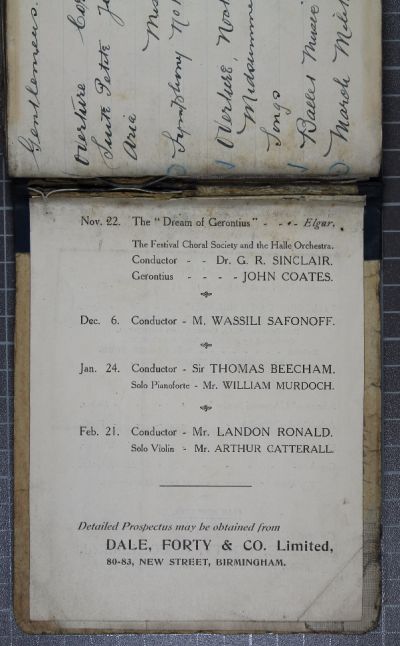 Gentlemens.
Overture
Suite Petite
Aria
Symphony No
Overture
Midsummer
Songs
Ballet Music
March
Nov. 22. The "Dream of Gerontius" - - - Elgar.
The Festival Choral Society and the Halle Orchestra.
Conductor - - Dr. G. R. SINCLAIR.
Gerontius - - - - JOHN COATES.
Dec. 6. Conductor - M. WASSILI SAFONOFF.
Jan. 24. Conductor - Sir THOMAS BEECHAM.
Solo Pianoforte - Mr. WILLIAM MURDOCH.
Feb. 21. Conductor - Mr. LANDON RONALD.
Solo Violin - Mr. ARTHUR CATTERALL.
Detailed Prospectus may be obtained from
DALE, FORTY & CO. Limited,
80-83, NEW STREET, BIRMINGHAM.